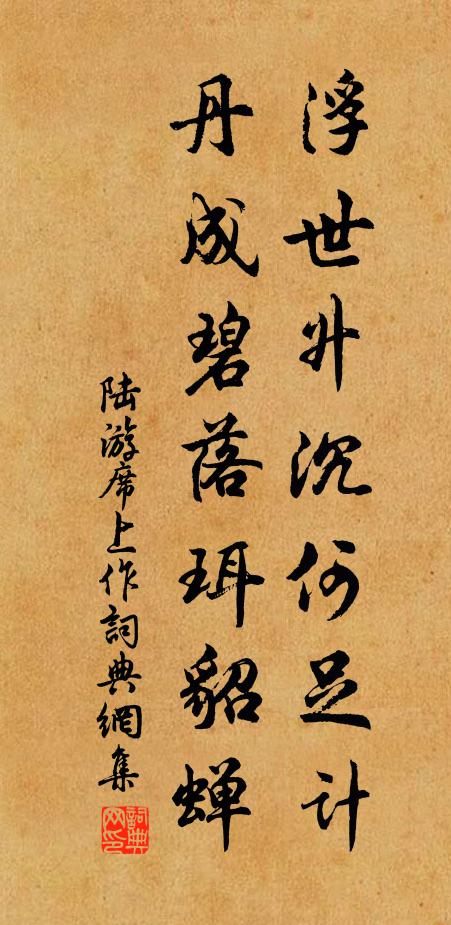 浮世升沉何足计
丹成碧落珥貂蝉
陆游席上作词典網集
詞典網印